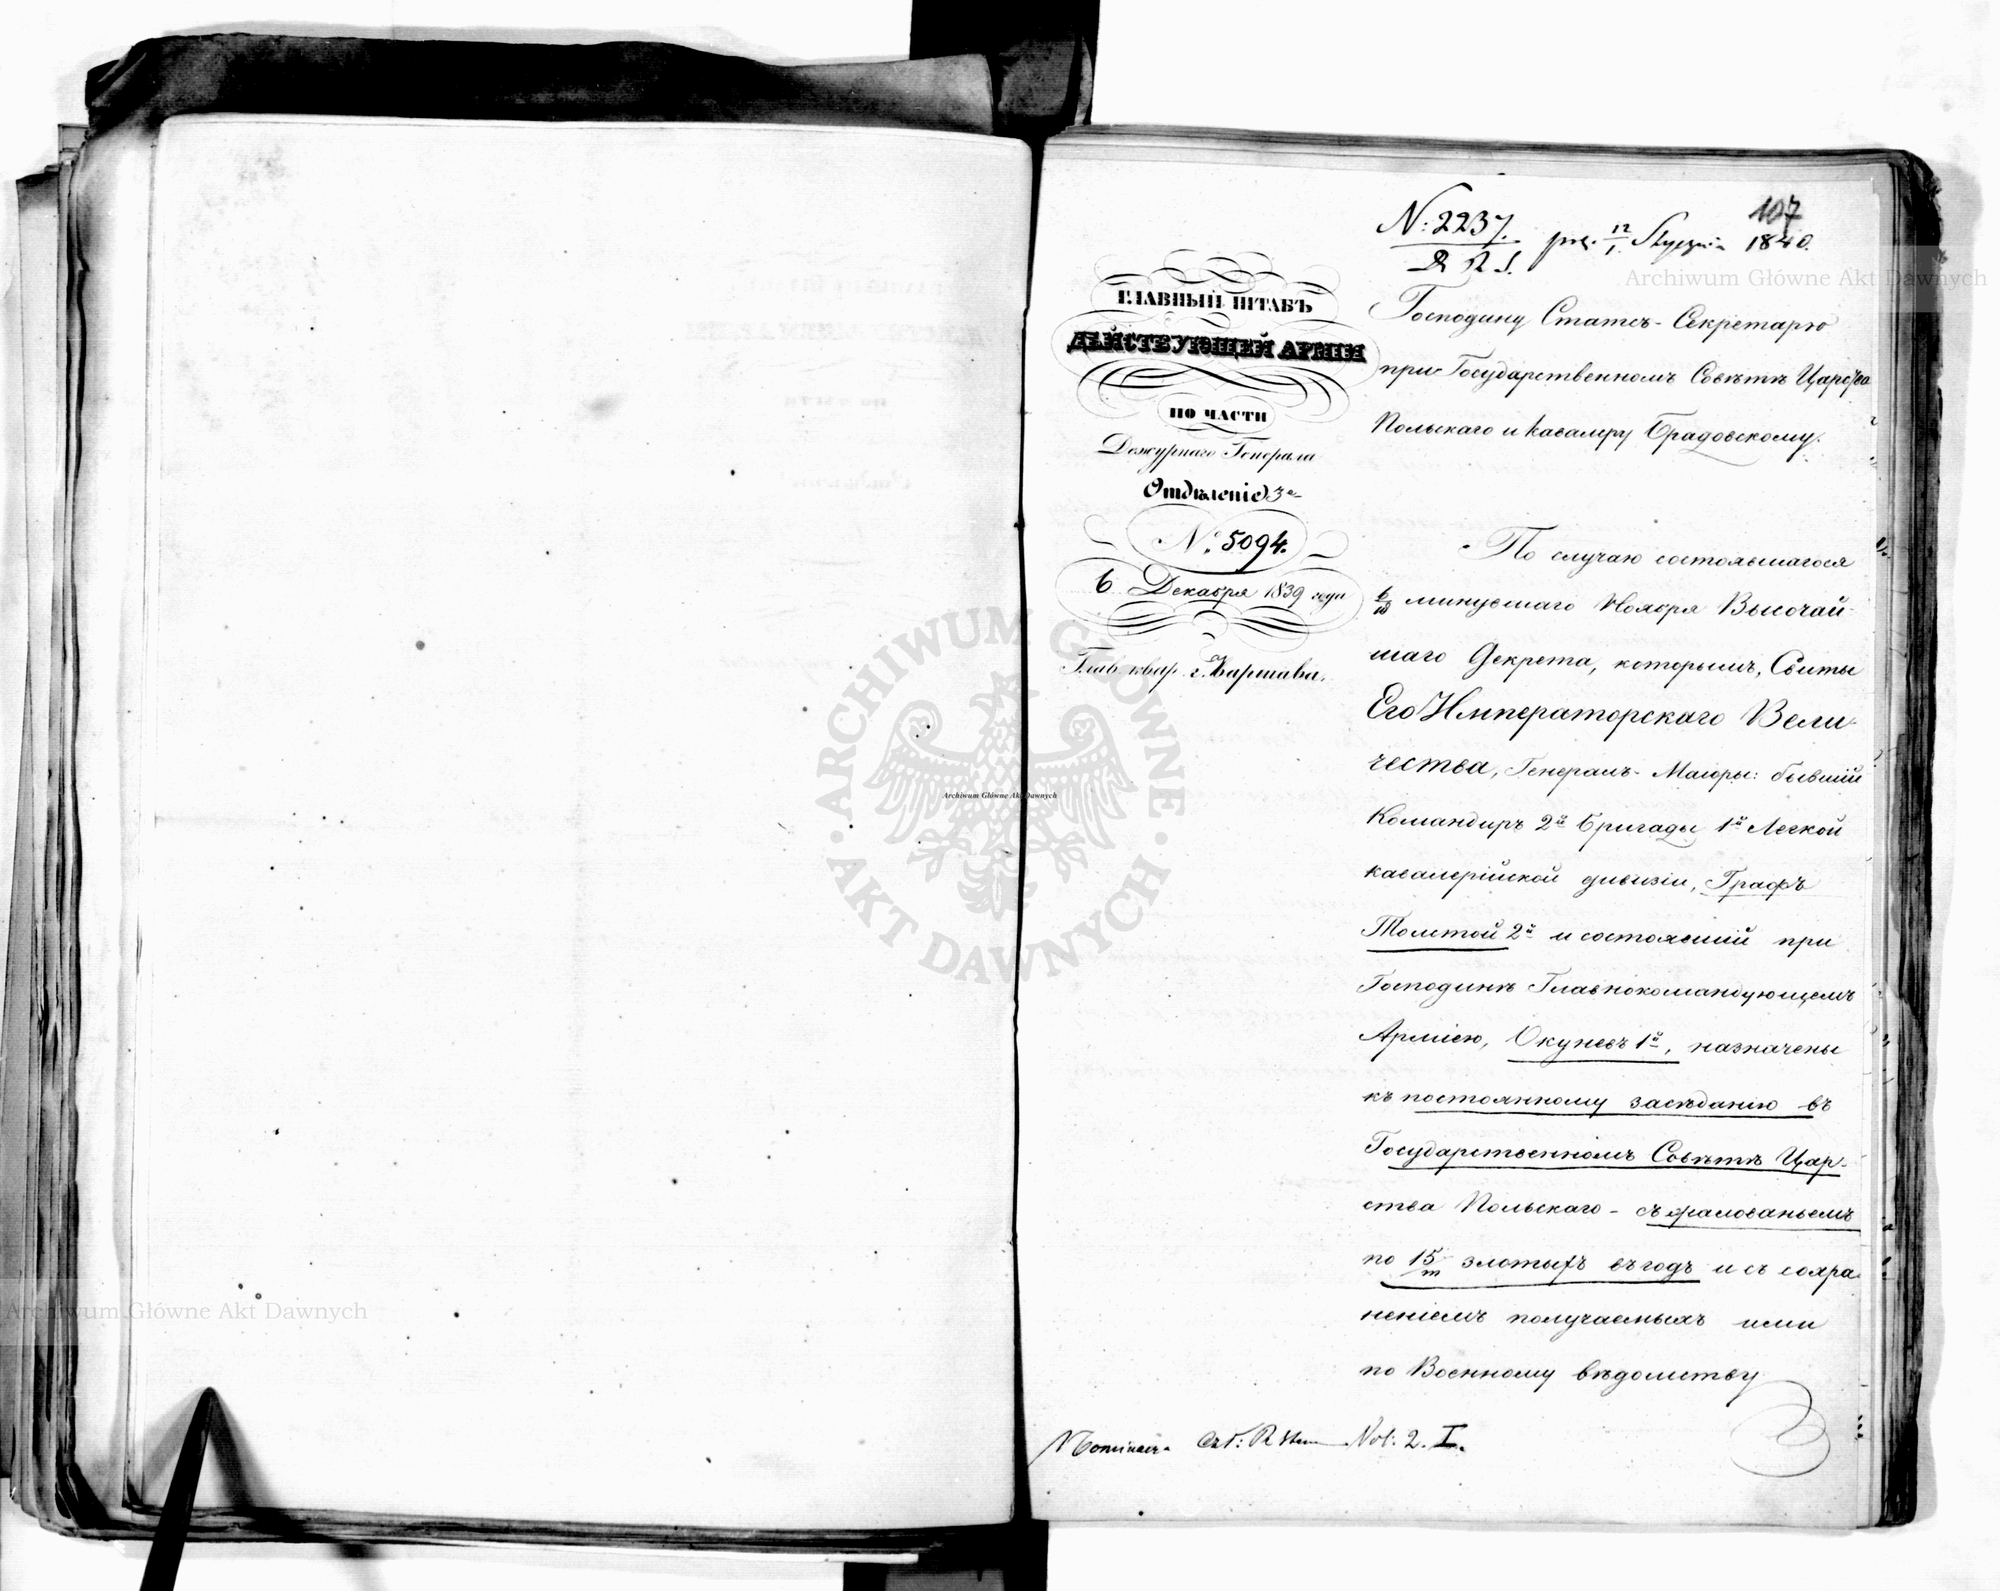 107
N: 2237. prs. 12/1. Stycznia 1840.
R S.
ГЛАВНЫЙ ШТАБЪ
ДѢЙСТВУЮЩЕЙ АРМІИ
ПО ЧАСТИ
Дежурнаго Генерала
Отдѣленіе 3е
№ 5094.
6 Декабря 1839 года
Глав. квар. г. Варшава.
Господину Статсъ-Секретарю
при Государственномъ Совѣтѣ Царства
Польскаго и Кавалеру Градовскому.
По случаю состоявшагося
6/18 минувшаго Ноября Высочай-
шаго Декрета, которымъ, Свиты
Его Императорскаго Вели-
чества, Генералъ-Маіоры: бывшій
Командиръ 2й Бригады 1й Легкой
кавалерійской дивизіи, Графъ
Толстой 2й и состоявшій при
Господинѣ Главнокомандующемъ
Арміею, Окуневъ 1й, назначены
къ постоянному засѣданію въ
Государственномъ Совѣтѣ Цар-
ства Польскаго - съ жалованьемъ
по 15/m злотыхъ въ годъ и съ сохра-
неніемъ получаемыхъ ими
по Военному вѣдомству
Nominacye Czł: R Stanu Vol: 2. I.
Archiwum Główne Akt Dawnych
Archiwum Główne Akt Dawnych
Archiwum Główne Akt Dawnych
ARCHIWUM GŁÓWNE AKT DAWNYCH